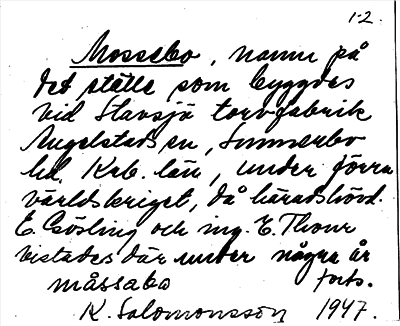 1-2.
Mossebo, namn på
det ställe som byggdes
vid Slavsjö torvfabrik
Angelstads sn, Sunnerbo
hd. Krb. län, under förra
världskriget, då häradshövd.
E. Gösling och ing. E. Thour
vistades där under några år
måssabo forts.
K. Salomonsson 1947.